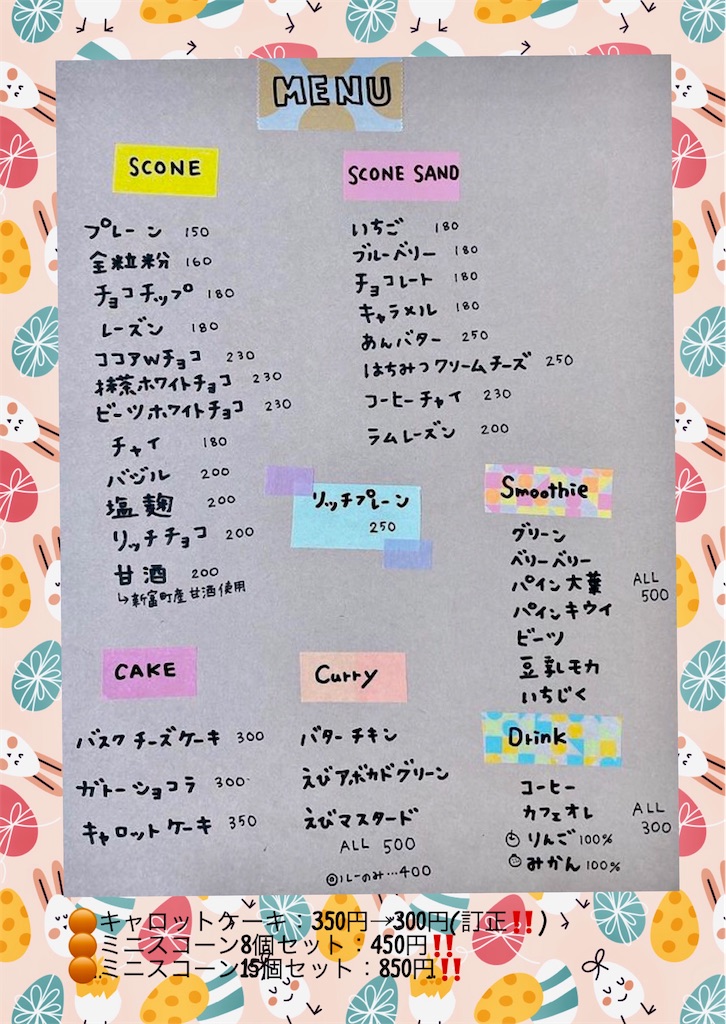 MENU
SCONE
プレーン 150
全粒粉 160
チョコチップ 180
レーズン 180
ココアWチョコ 230
抹茶ホワイトチョコ 230
ビーツホワイトチョコ 230
チャイ 180
バジル 200
塩麹 200
リッチチョコ 200
甘酒 200
↳新富町産甘酒使用
SCONE SAND
いちご 180
ブルーベリー 180
チョコレート 180
キャラメル 180
あんバター 250
はちみつクリームチーズ 250
コーヒーチャイ 230
ラムレーズン 200
リッチプレーン
250
Smoothie
グリーン
ベリーベリー
パイン大葉
パインキウイ
ビーツ
豆乳モカ
いちじく
ALL
500
CAKE
バスクチーズケーキ 300
ガトーショコラ 300
キャロットケーキ 350
Curry
バターチキン
えびアボカドグリーン
えびマスタード
ALL 500
◎ルーのみ…400
Drink
コーヒー
カフェオレ
りんご100%
みかん100%
ALL
300
🟠キャロットケーキ：350円→300円(訂正‼️)
🟠ミニスコーン8個セット：450円‼️
🟠ミニスコーン15個セット：850円‼️